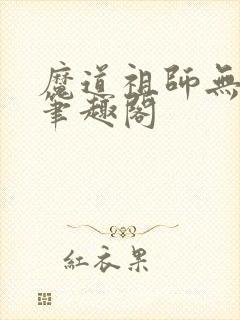 魔道祖師無
筆趣閣
紅衣果